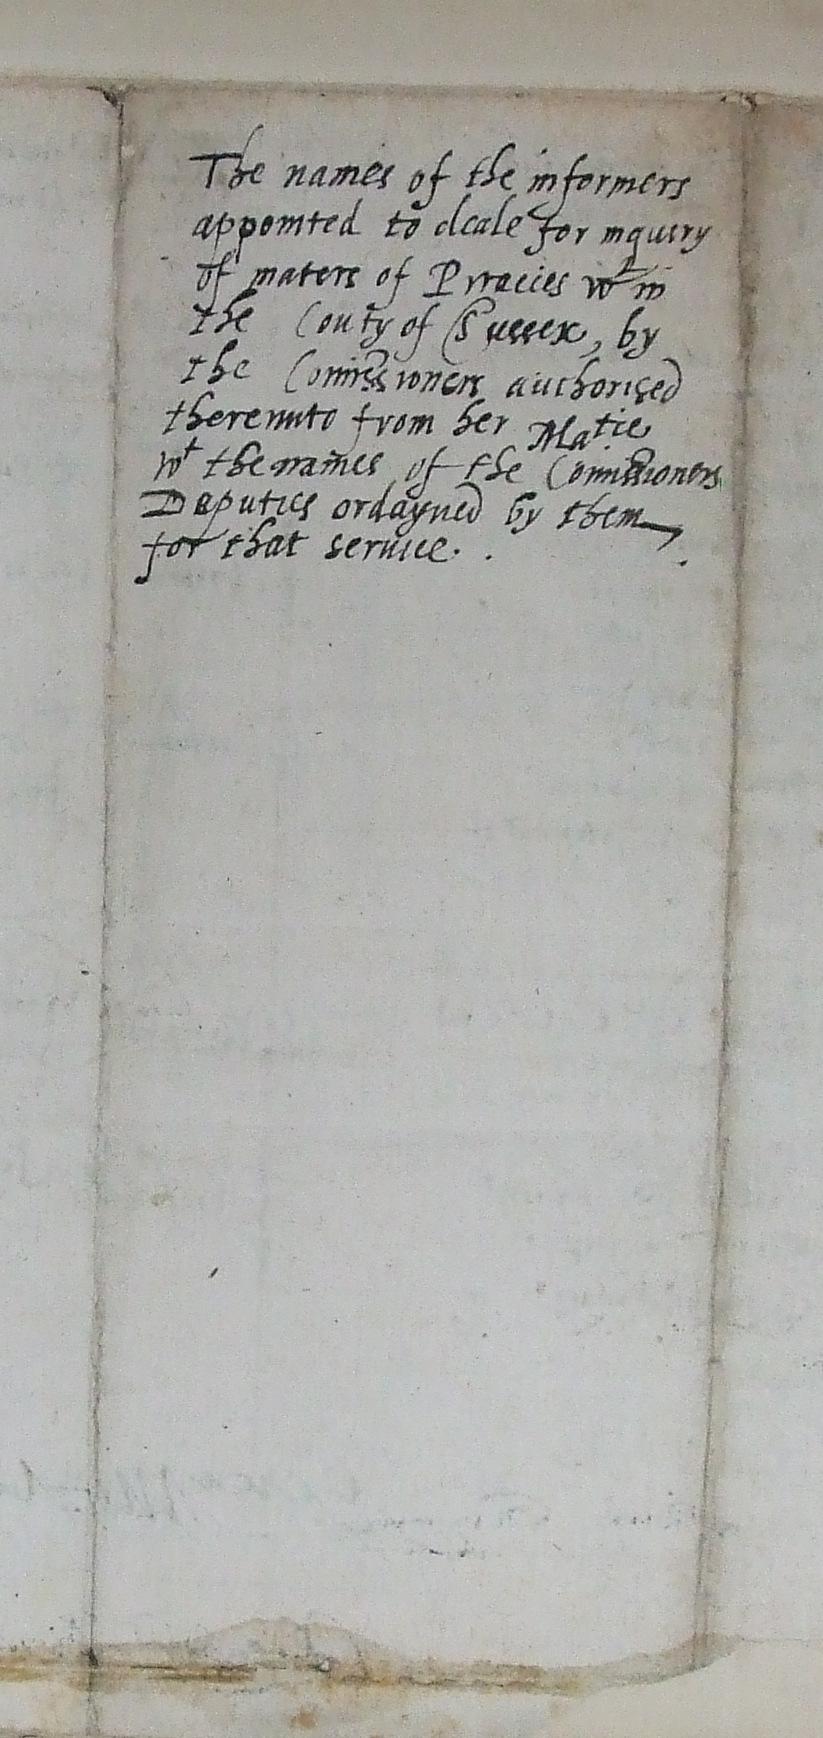 The names of the informers
appointed to deale for inquiry
of maters of Piracies wt in
the Couty of Sussex, by
the Comissioners authorised
thereunto from her Matie
wt the names of the Comissioners
Deputies ordayned by them
for that seruice. .